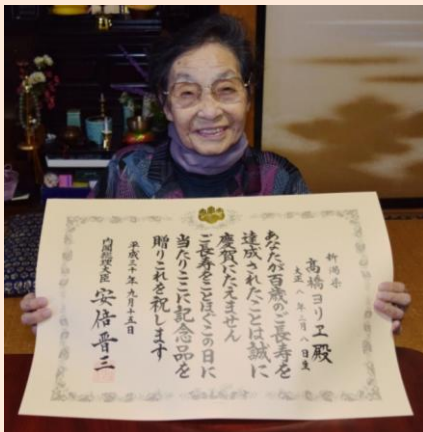 新潟県
高橋ヨリヱ殿
大正八年二月八日生
あなたが百歳のご長寿を
達成されたことは誠に
慶賀にたえません
ご長寿をことほぐこの日に
当たりここに記念品を
贈りこれを祝します
平成三十年九月十五日
内閣総理大臣 安倍晋三